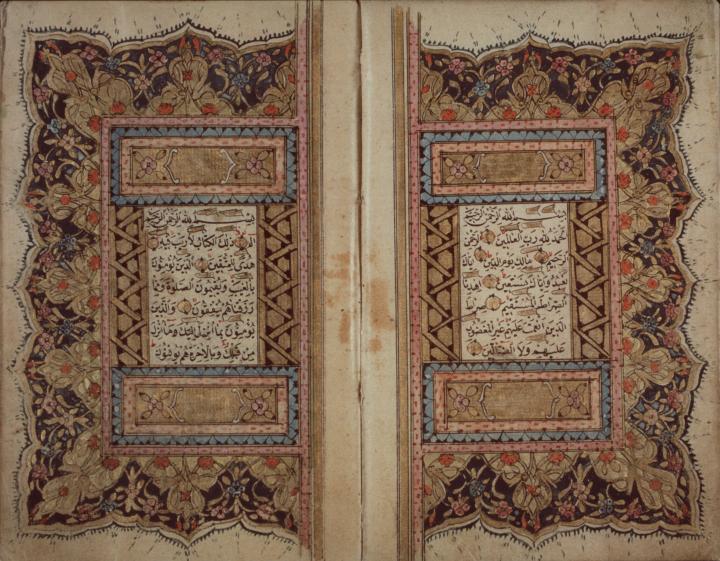 بسم الله الرحمن الرحيم
الحمد لله رب العالمين الرحمن
الرحيم مالك يوم الدين اياك
نعبد واياك نستعين اهدنا
الصراط المستقيم صراط
الذين انعمت عليهم غير المغضوب
عليهم ولا الضالين
بسم الله الرحمن الرحيم
الم ذلك الكتاب لا ريب فيه
هدى للمتقين الذين يؤمنون
بالغيب ويقيمون الصلوة ومما
رزقناهم ينفقون والذين
يؤمنون بما انزل اليك وما انزل
من قبلك وبالاخرة هم يوقنون